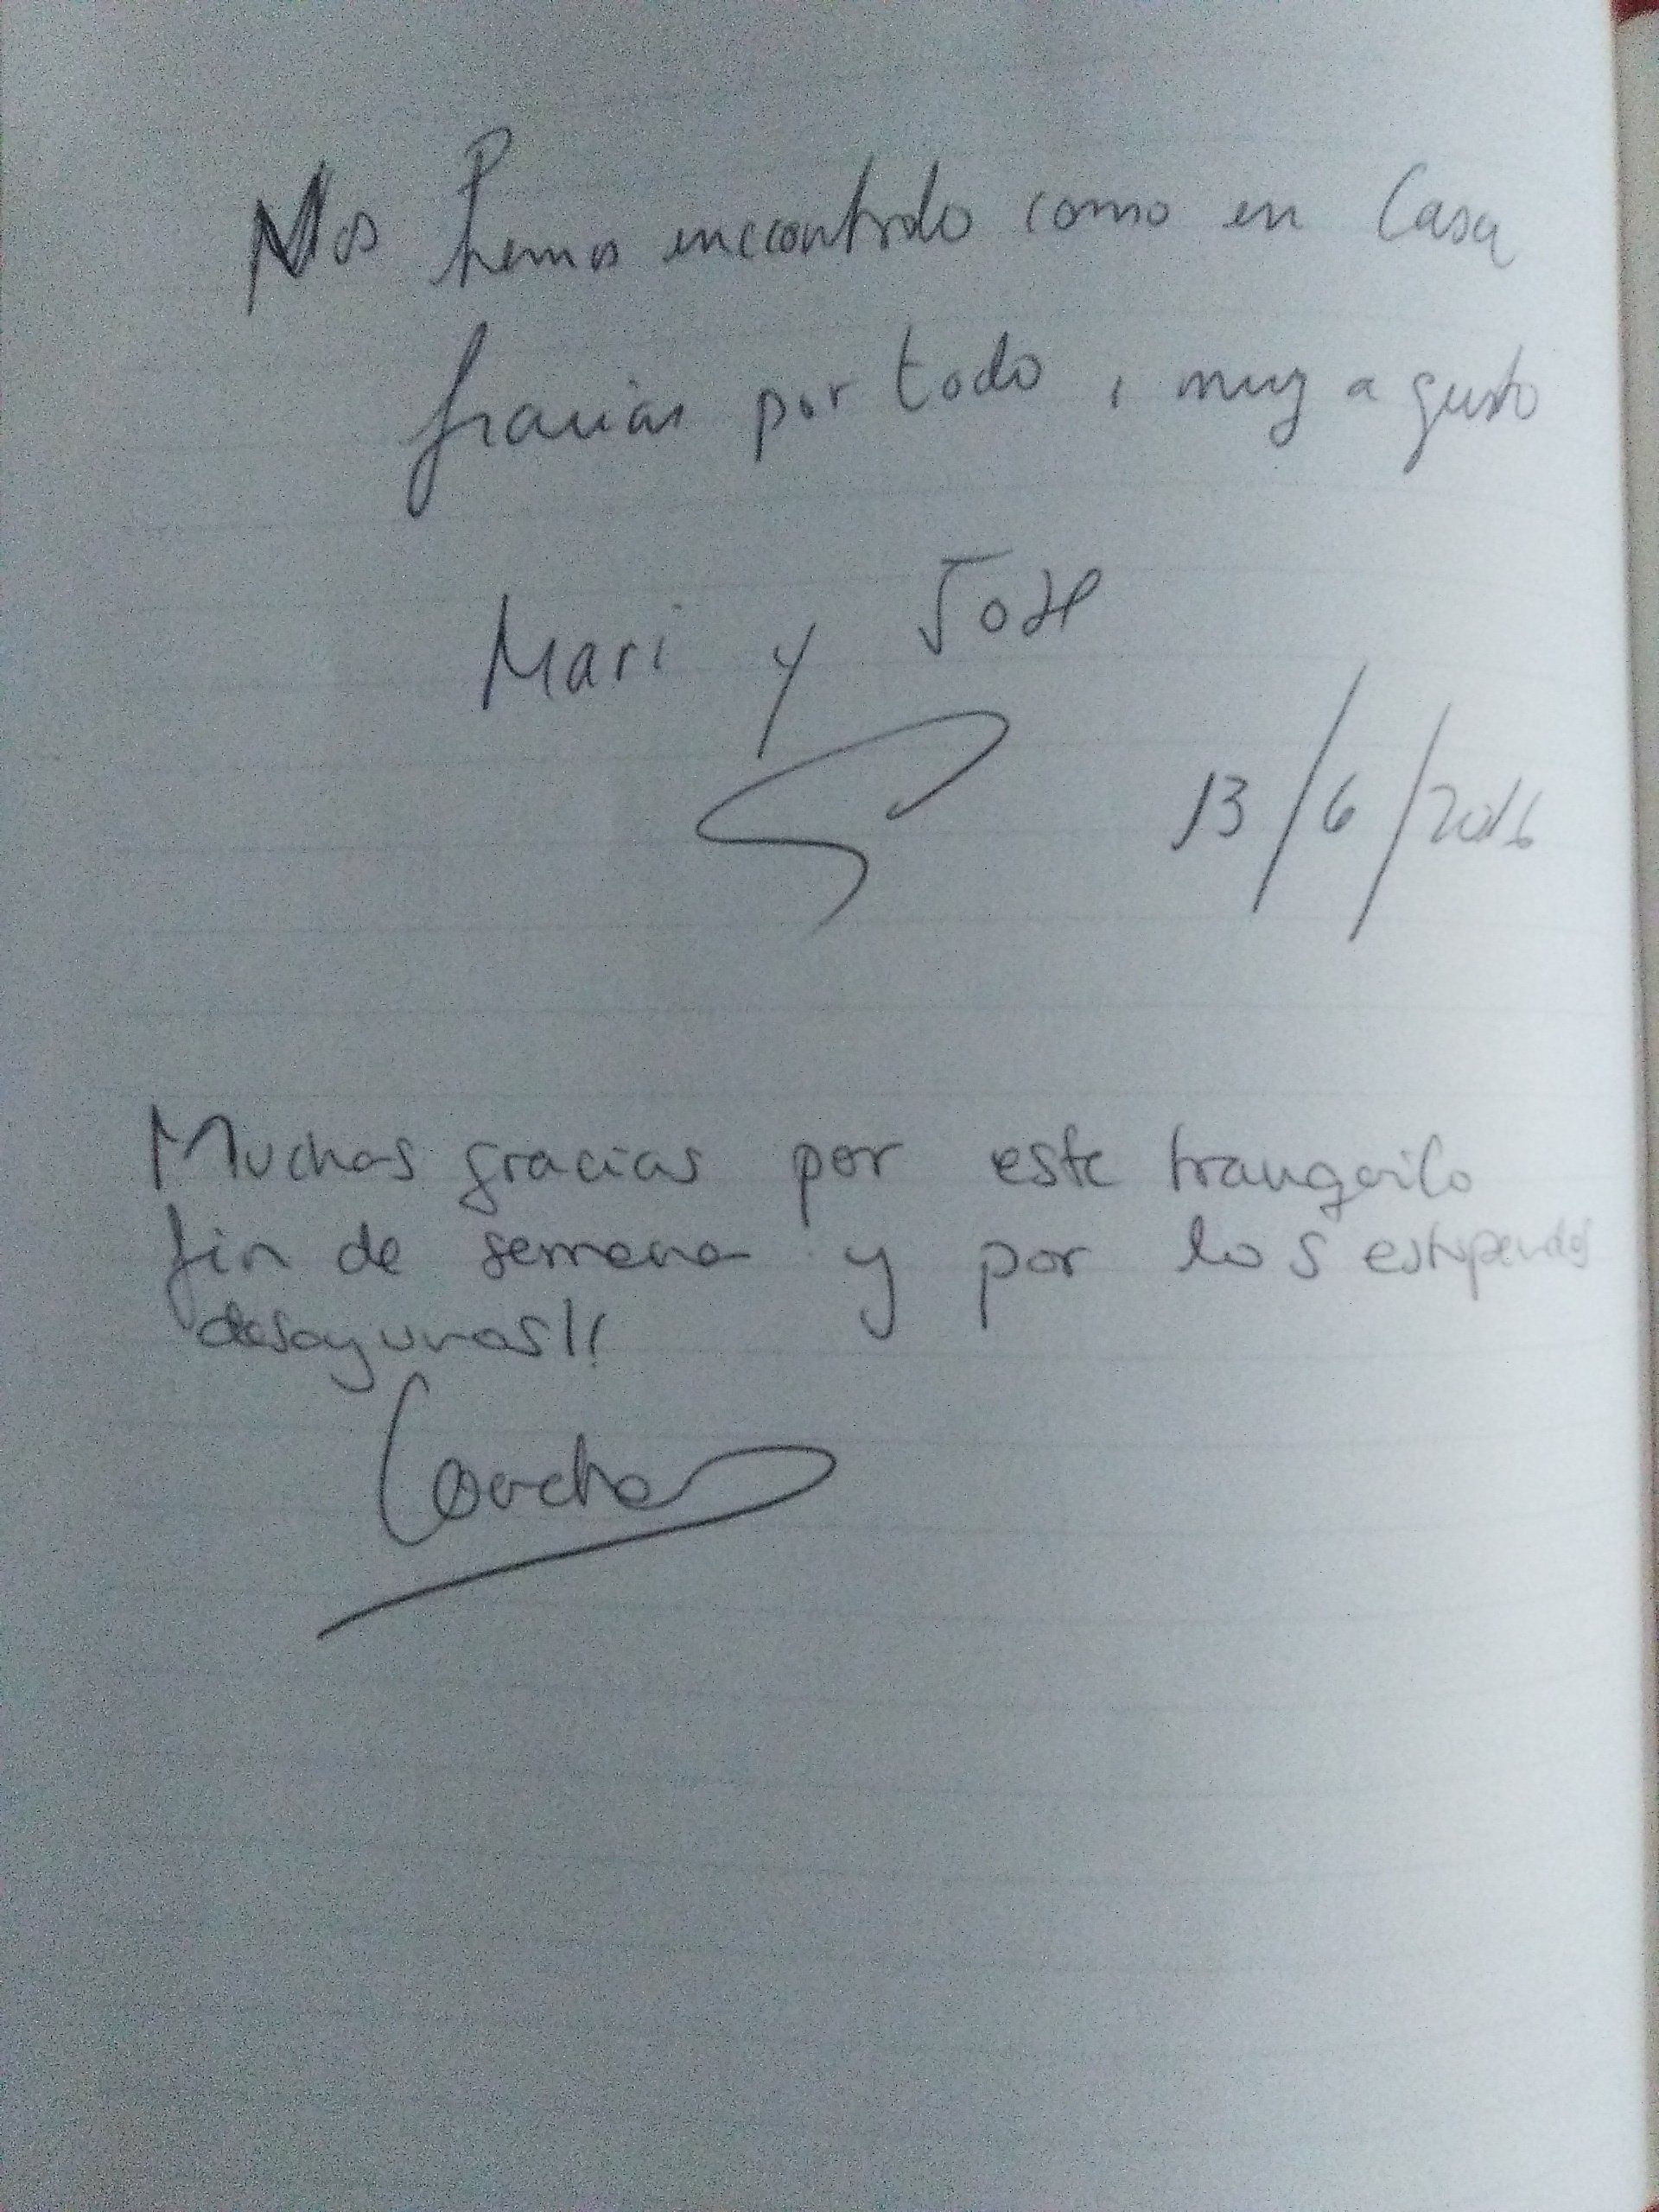 Nos hemos encontrado como en Casa
gracias por todo, muy a gusto
Mari y Jose
13/6/2016
Muchas gracias por este tranquilo
fin de semana y por los estupendos
desayunos!!
Concha